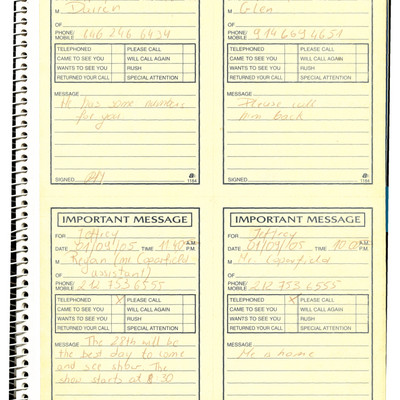 M Darren
M Glen
OF
OF
PHONE/MOBILE 846 246 6434
PHONE/MOBILE 914 669 4651
TELEPHONED PLEASE CALL
CAME TO SEE YOU WILL CALL AGAIN
WANTS TO SEE YOU RUSH
RETURNED YOUR CALL SPECIAL ATTENTION
TELEPHONED PLEASE CALL
CAME TO SEE YOU WILL CALL AGAIN
WANTS TO SEE YOU RUSH
RETURNED YOUR CALL SPECIAL ATTENTION
MESSAGE He has some
for you
MESSAGE Please call
him back
SIGNED
1184
SIGNED
1184
IMPORTANT MESSAGE
FOR Jeffrey
DATE 01/09/05 TIME 11:40 A.M. P.M.
M Regan (mr Coperfield
OF assistant)
PHONE/MOBILE 212 753 6555
TELEPHONED X PLEASE CALL
CAME TO SEE YOU WILL CALL AGAIN
WANTS TO SEE YOU RUSH
RETURNED YOUR CALL SPECIAL ATTENTION
MESSAGE The 28th will be
the best day to come
and see show. The
show starts at 8:30
IMPORTANT MESSAGE
FOR Jeffrey
DATE 01/09/05 TIME 10:0 A.M. P.M.
M Mr. Coperfield
OF
PHONE/MOBILE 212 753 6555
TELEPHONED X PLEASE CALL
CAME TO SEE YOU WILL CALL AGAIN
WANTS TO SEE YOU RUSH
RETURNED YOUR CALL SPECIAL ATTENTION
MESSAGE
home